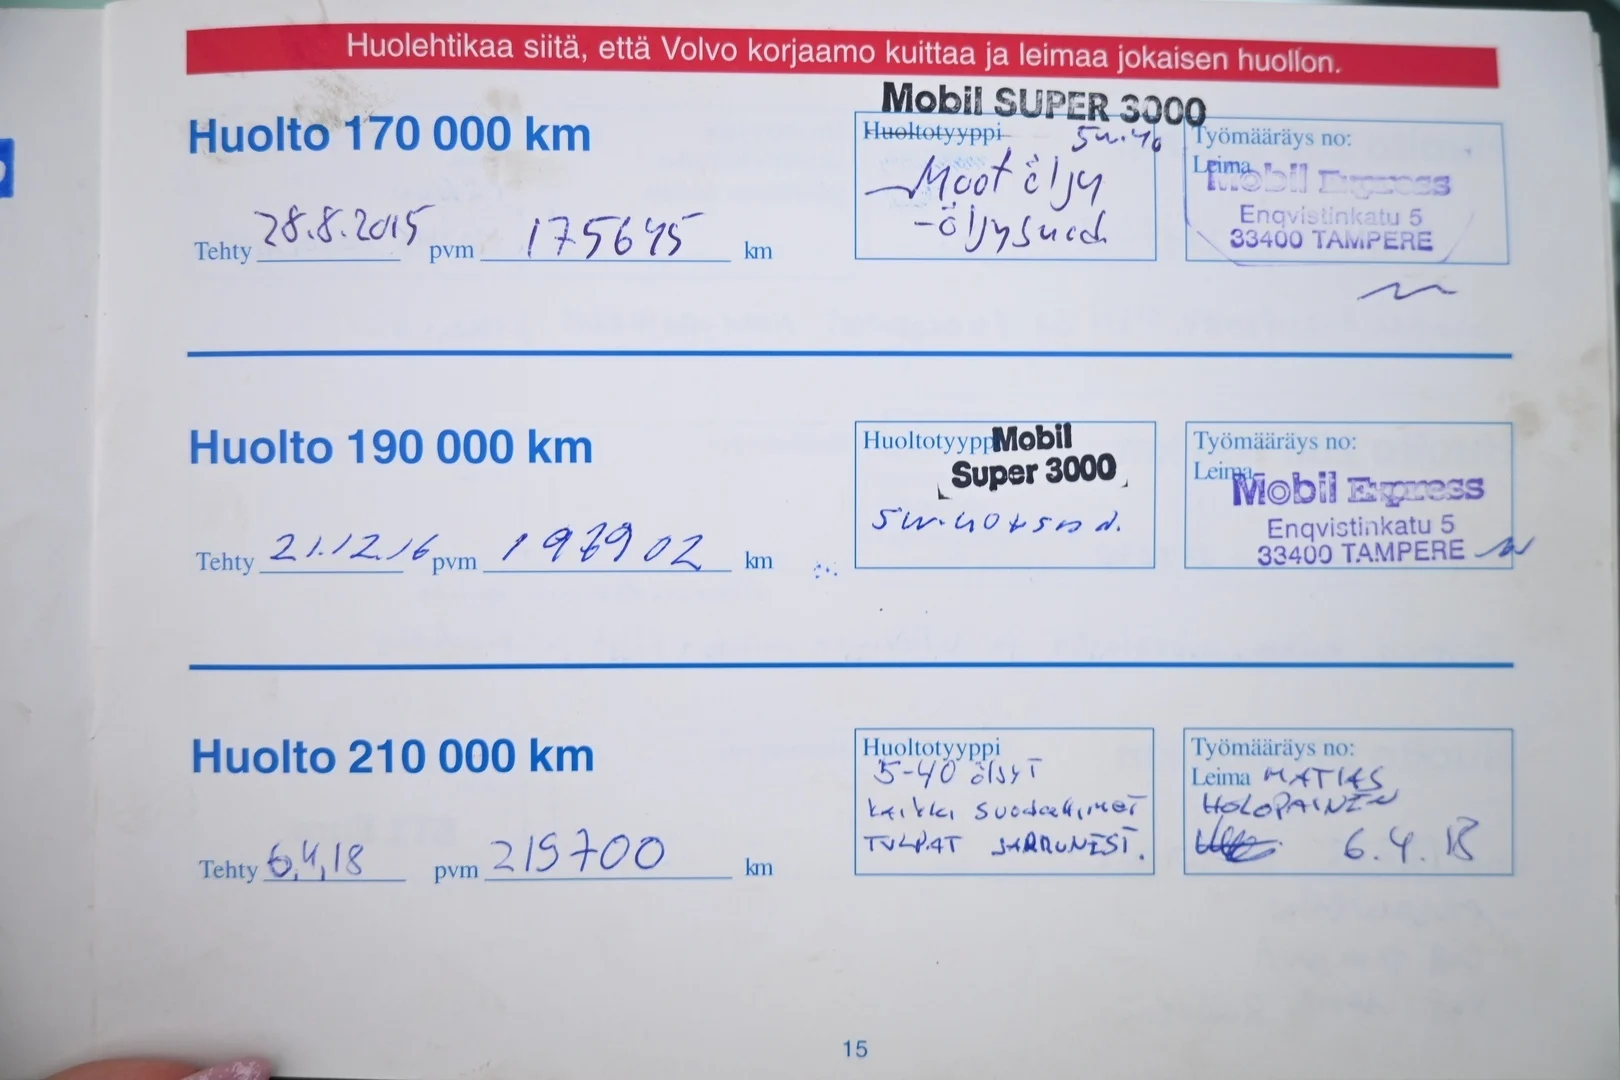 Huolehtikaa siitä, että Volvo korjaamo kuittaa ja leimaa jokaisen huollon.
Mobil SUPER 3000
Huolto 170 000 km
Huoltotyyppi 5w-40
Moot öljy
-öljysuod.
Työmääräys no:
Leima
Mobil Express
Enqvistinkatu 5
33400 TAMPERE
Tehty 28.8.2015 pvm 175645 km
Huolto 190 000 km
Huoltotyyppi Mobil
Super 3000
5w-40 +
Työmääräys no:
Leima
Mobil Express
Enqvistinkatu 5
33400 TAMPERE
Tehty 21.12.16 pvm km
Huolto 210 000 km
Huoltotyyppi
5-40 öljyt
kaikki suodattimet
TULPAT JARRUNEST.
Työmääräys no:
Leima MATIAS
HOLOPAINEN
6.4.18
Tehty 6,4,18 pvm 219700 km
15